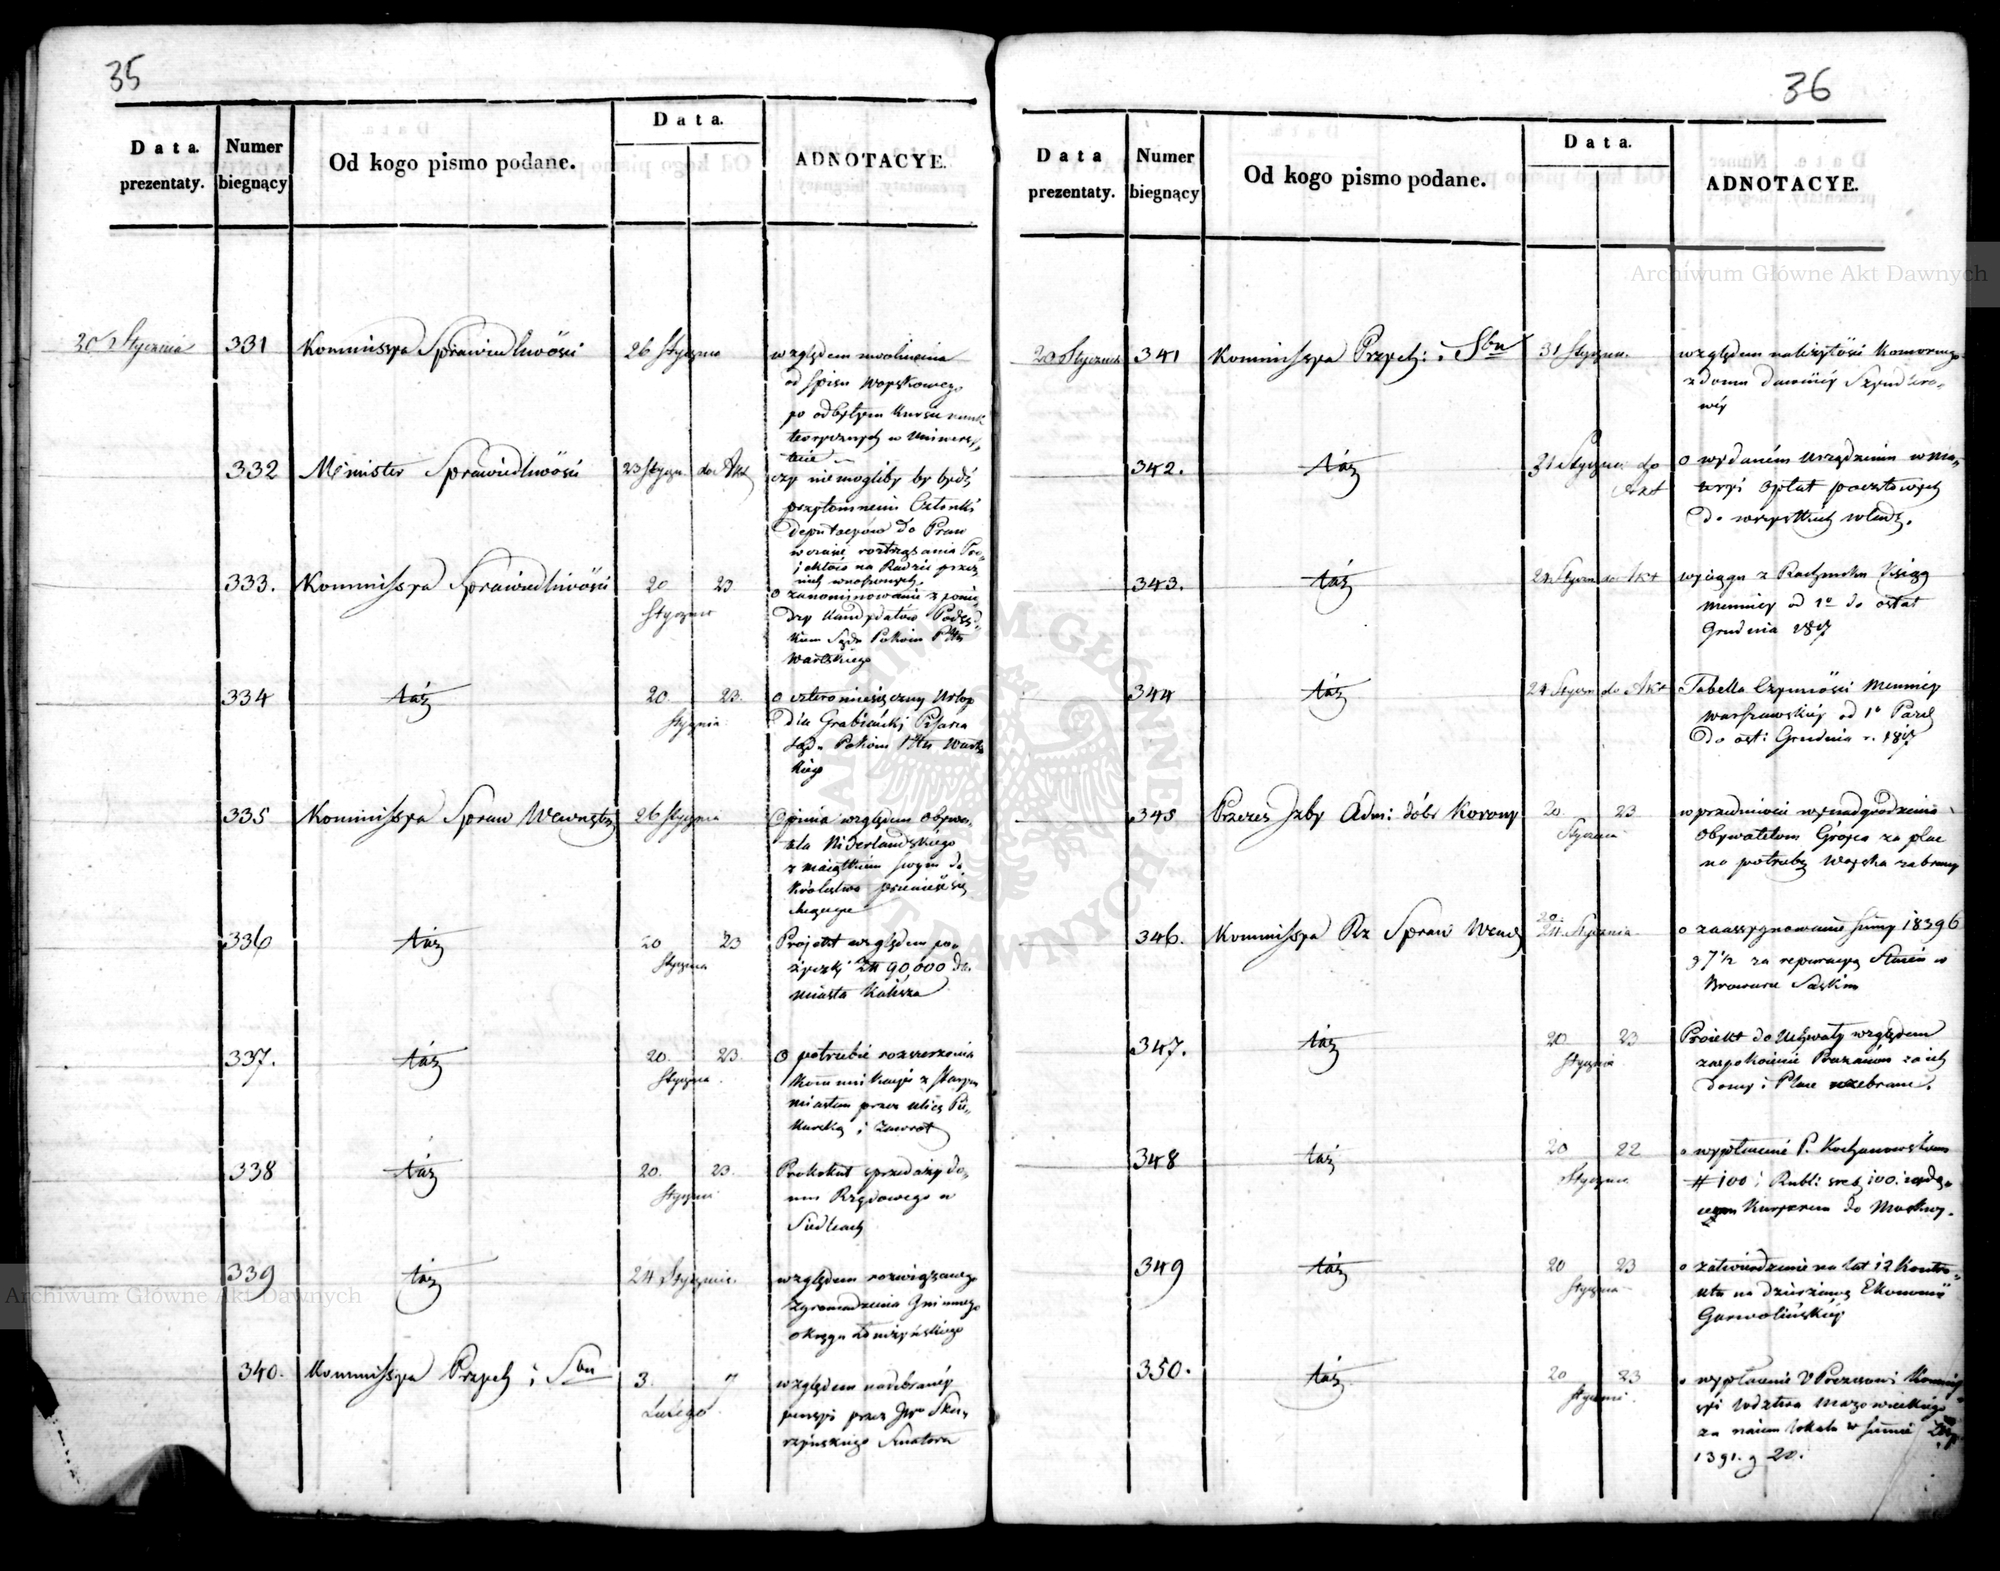 35
Data prezentaty.
Numer biegnący
Od kogo pismo podane.
Data.
ADNOTACYE.
20 Stycznia
331
Kommissya Sprawiedliwości
26 Stycznia
względem uwolnienia
od spisu Woyskowego
po odbytym Kursie nauk
teorycznych w Uniwersy-
tecie
332
Minister Sprawiedliwości
23 Stycz. do Akt
czy niemogliby być
przytomnemi Członki
deputacyów do Praw
w czasie roztrząsania Pro-
jektów na Radzie przez
nich wnoszonych
333.
Kommissya Sprawiedliwości
20 23
Stycznia
o zanominowanie z pomię-
dzy Kandydatów Podsęd-
kiem Sądu Pokoiu Pttu
Wartskiego
334
táż
20. 23.
Stycznia
o czteromiesięczny Urlop
dla Grabiański Pisarza
Sądu Pokoiu Pttu Warts-
kiego
335
Kommissya Spraw Wewnętrz
26 Stycznia
Opinia względem Obywa-
tela Niderlandskiego
z maiątkiem swym do
Królestwa przenieść się
336
táż
20 23
Stycznia
Projekt względem po-
życzki Zł 90,000 dla
miasta Kalisza
337.
táż
20. 23.
Stycznia.
O potrzebie rozszerzenia
Kommunikacyi z Starym
miastem przez ulicę Pie-
karską i Zawrot
338
táż
20. 23.
Stycznia
Protokuł sprzedaży do-
mu Rządowego w
Siedlcach
339
táż
24 Stycznia.
względem rozwiązanego
Zgromadzenia Gminnego
okręgu Łomżyńskiego
340.
Kommissya Przych i Sbu
3. 7
Lutego.
względem nadebraney
pensyi przez Senatora
36
Data prezentaty.
Numer biegnący
Od kogo pismo podane.
Data.
ADNOTACYE.
20 Stycznia
341
Kommissya Przych: i Sbu
31 Styczn.
względem należytości Komornego
z domu dawniey Szyndlero-
wéy
342.
táż
31 Stycznia do Akt
o wydaniem urządzenia w ma-
teryi Opłat pocztowych
do wszystkich władz.
343.
táż
24 Styczn do Akt
wyciągu z Rachunku Ksiąg
Mennicy od 1º do ostat
Grudnia 1817
344
táż
24 Styczn do Akt
Tabella Czynności Mennicy
Warszawskiéy od 1º Paźd
do ost: Grudnia r. 1817
345
Prezes Izby Adm: dóbr Korony
20 23
Stycznia
w przedmiocie wynadgrodzenia
Obywatelom Gróyca za plac
na potrzeby Woyska zabrany
346.
Kommissya Rz Spraw Wew
20.
24. Stycznia
o zaassygnowanie Summy 18396
g 7½ za reperacyą Stuień w
Browaru Saskim
347.
táż
20 23
Stycznia
Proiekt do Uchwały względem
zaspokoienie Prażanom za ich
domy i Place zabrane.
348
táż
20 22
Stycznia
o wypłacenie P. Kochanowskiemu
# 100 i Rubli sreb 100: iadą-
cym Kuryerem do Moskwy.
349
táż
20 23
Stycznia
o zatwierdzenie na lat 12 Kontra-
ktu na dzierżawę Ekonomii
Garwolińskiéy
350.
táż
20 23
Stycznia.
o wypłacenie Prezesowi Kommis
syi Wdztwa Mazowieckiego
za naiem lokalu w summie Złp
1391. g 20.
Archiwum Główne Akt Dawnych
Archiwum Główne Akt Dawnych
ARCHIWUM GŁÓWNE AKT DAWNYCH